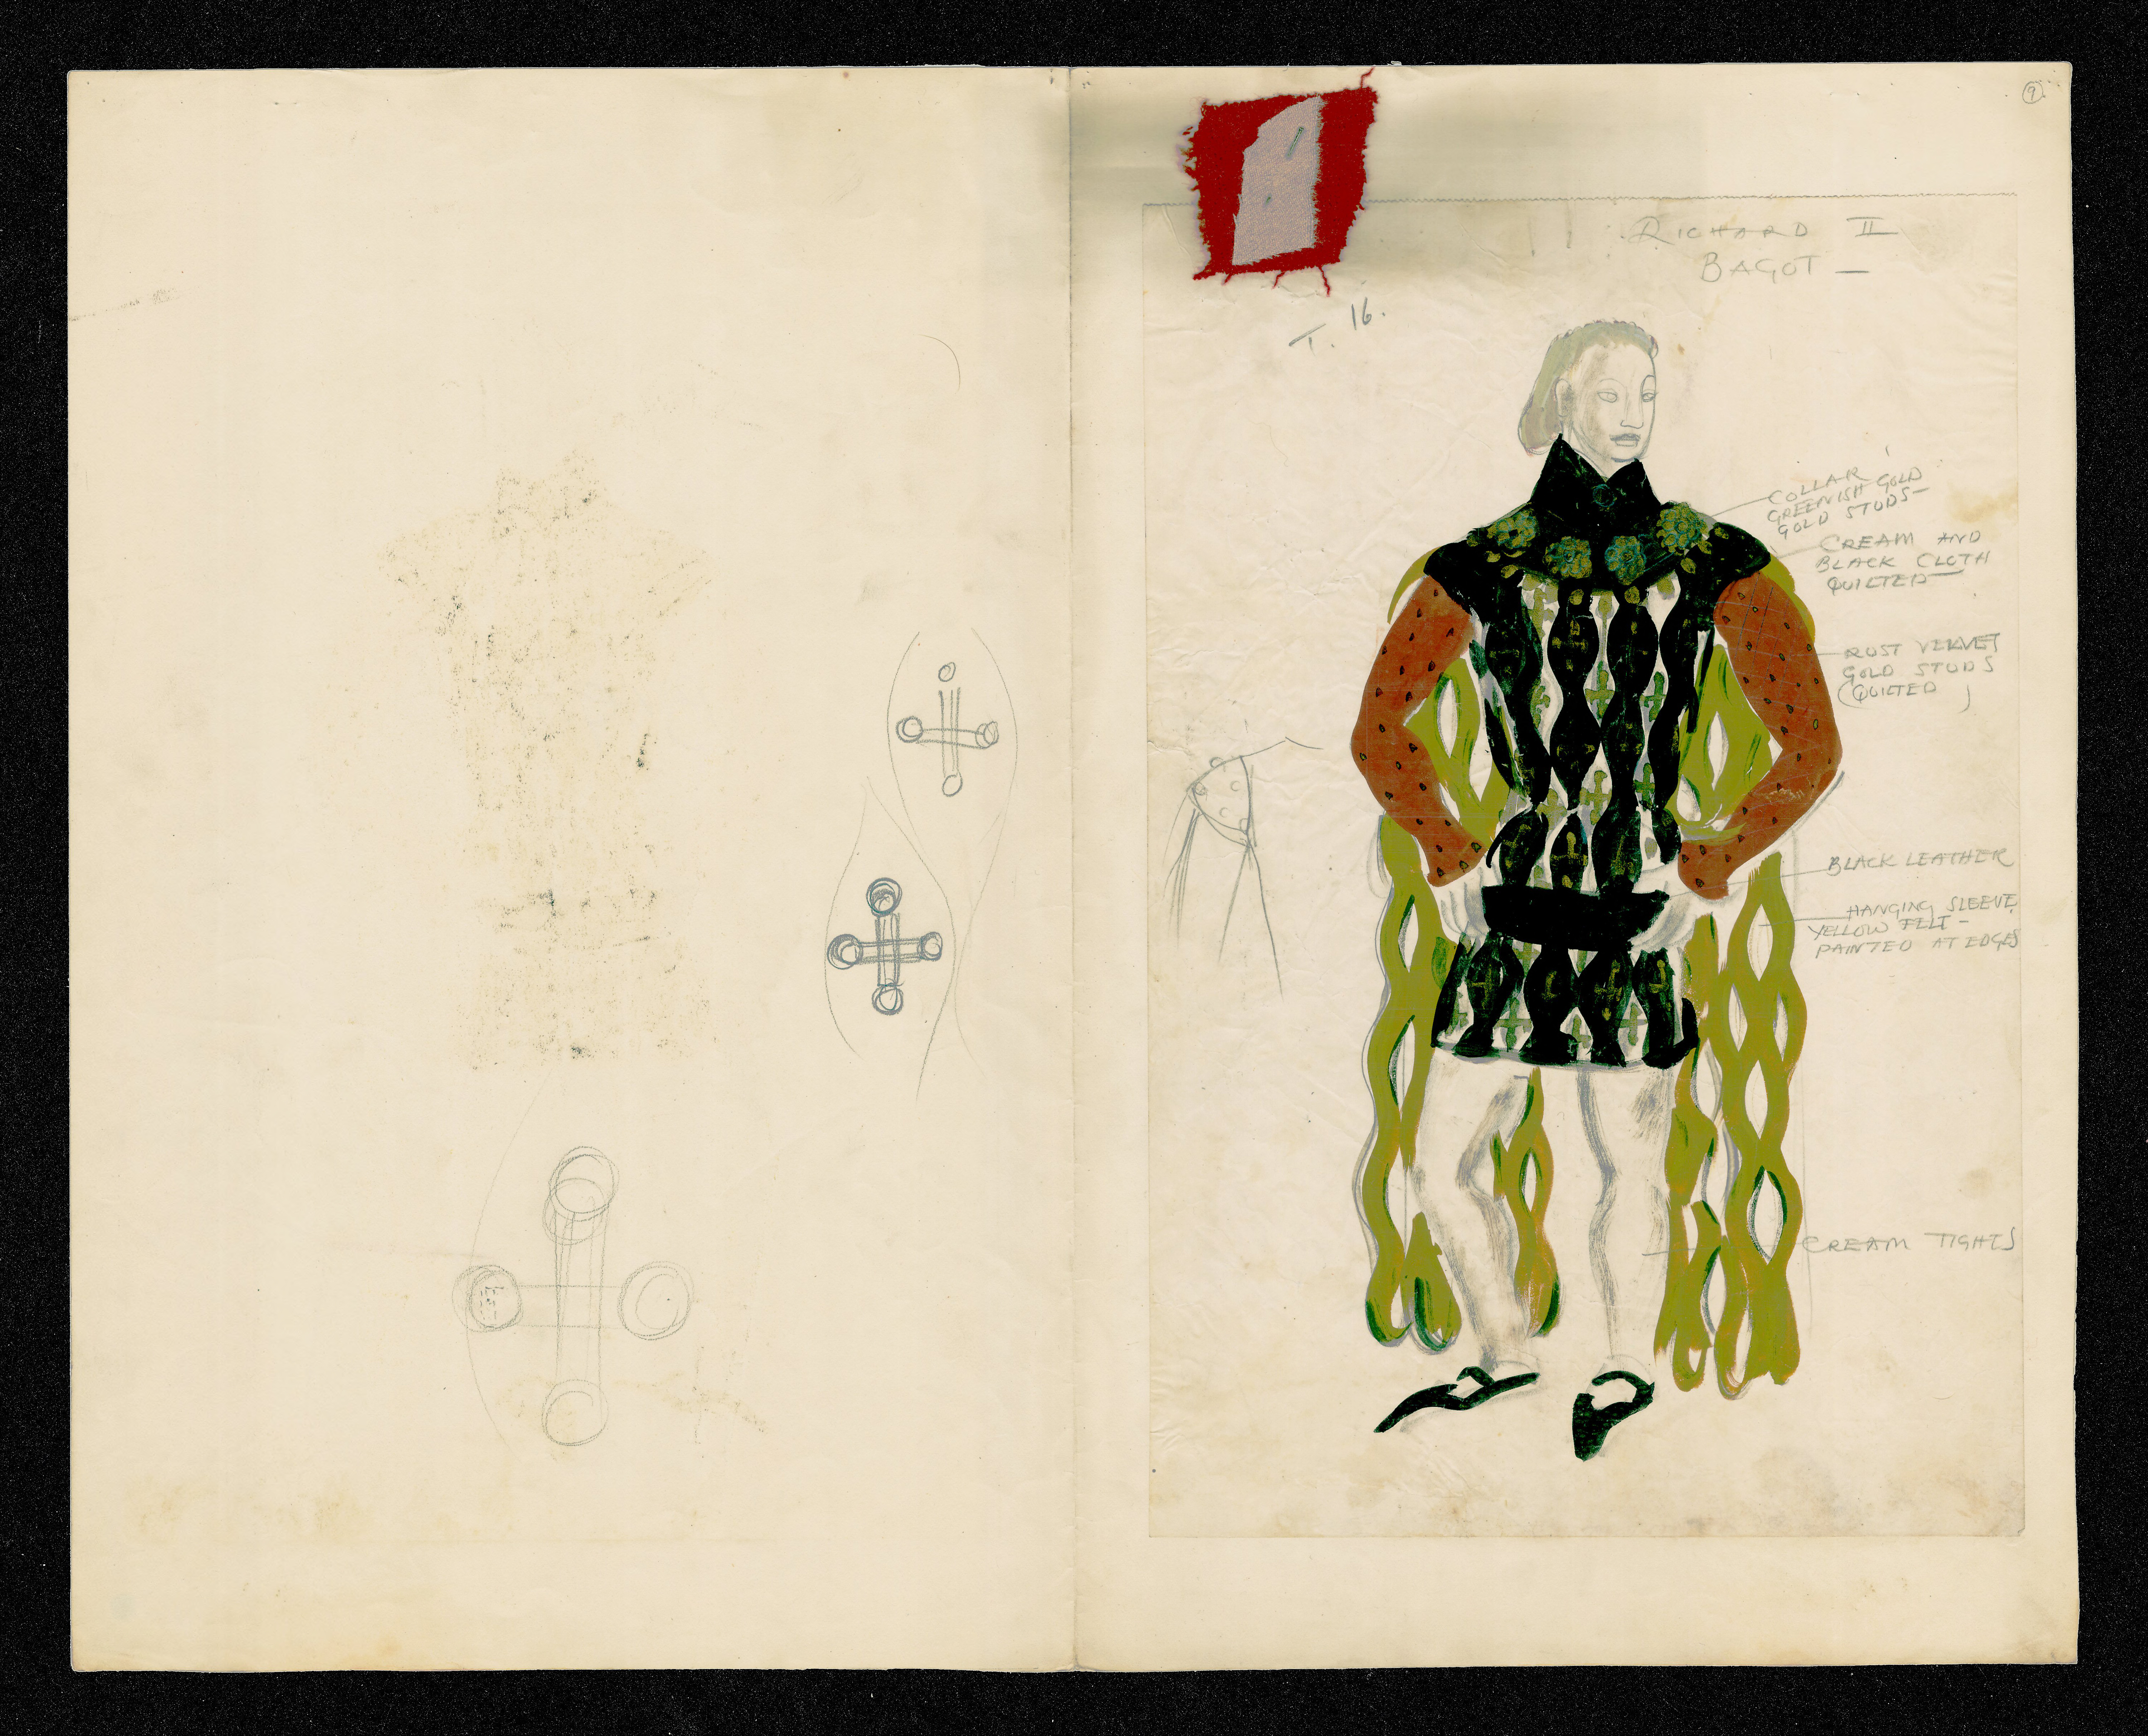 9
RICHARD II
BAGOT —
T. 16.
COLLAR
GREENISH GOLD
GOLD STUDS —
CREAM AND
BLACK CLOTH
QUILTED —
RUST VELVET
GOLD STUDS
(QUILTED)
BLACK LEATHER
HANGING SLEEVE
YELLOW FELT —
PAINTED AT EDGES
CREAM TIGHTS